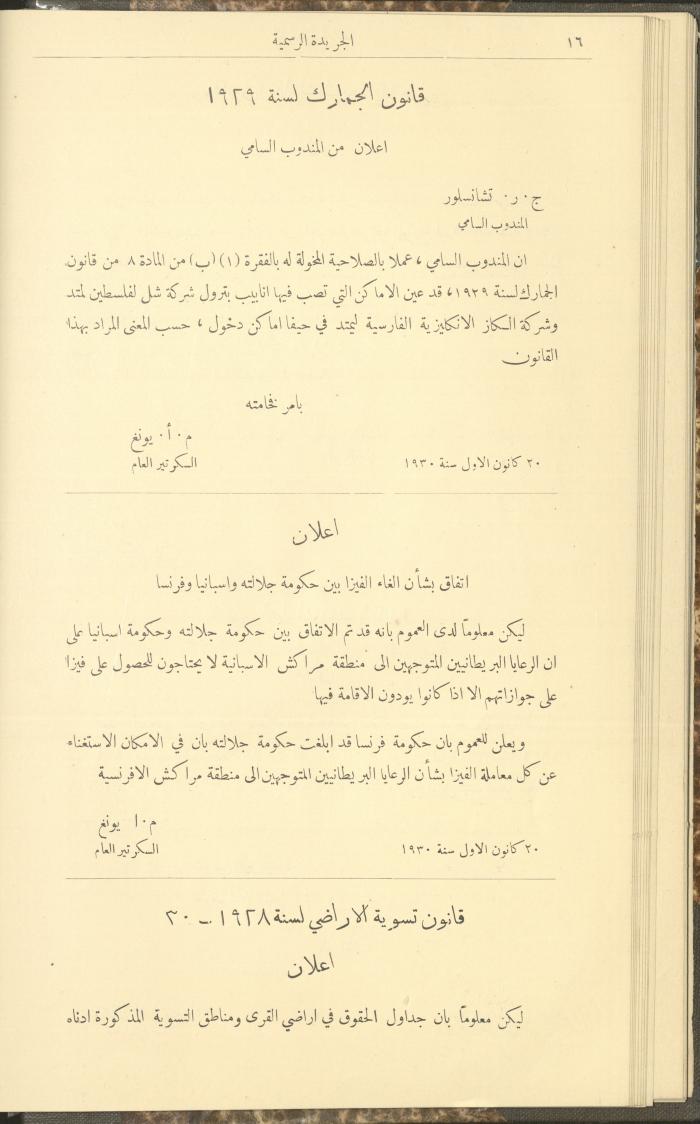 ١٦
الجريدة الرسمية
قانون الجمارك لسنة ١٩٢٩
اعلان من المندوب السامي
ج٠ ر٠ تشانسلور
المندوب السامي
ان المندوب السامي ، عملا بالصلاحية المخولة له بالفقرة (١) (ب) من المادة ٨ من قانون
الجمارك لسنة ١٩٢٩، قد عين الاماكن التي تصب فيها انابيب بترول شركة شل لفلسطين لمتد
وشركة السكاز الانكليزية الفارسية ليمتد في حيفا اماكن دخول ، حسب المعنى المراد بهذا
القانون
بامر فخامته
م٠ أ٠ يونغ
٢٠ كانون الاول سنة ١٩٣٠
السكرتير العام
اعلان
اتفاق بشأن الغاء الفيزا بين حكومة جلالته واسبانيا وفرنسا
ليكن معلوماً لدى العموم بانه قد تم الاتفاق بين حكومة جلالته وحكومة اسبانيا على
ان الرعايا البريطانيين المتوجهين الى منطقة مراكش الاسبانية لا يحتاجون للحصول على فيزا
على جوازاتهم الا اذا كانوا يودون الاقامة فيها
ويعلن للعموم بان حكومة فرنسا قد ابلغت حكومة جلالته بان في الامكان الاستغناء
عن كل معاملة الفيزا بشأن الرعايا البريطانيين المتوجهين الى منطقة مراكش الافرنسية
م٠ ا يونغ
٢٠ كانون الاول سنة ١٩٣٠
السكرتير العام
قانون تسوية الاراضي لسنة ١٩٢٨ – ٣٠
اعلان
ليكن معلوماً بان جداول الحقوق في اراضي القرى ومناطق التسوية المذكورة ادناه